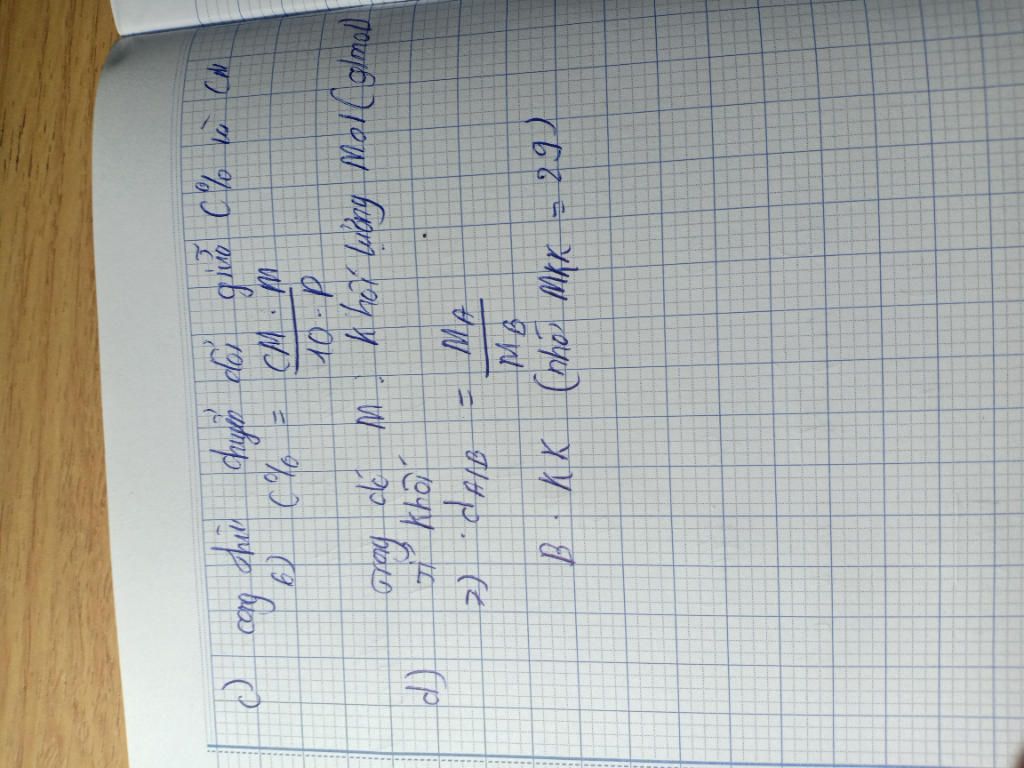 c) công thức chuyển đổi giữa C% và CM
6) C% = CM . M / 10 . D
trong đó M: khối lượng Mol (g/mol)
d) Tỉ khối
7) . dA/B = MA / MB
B . KK (nhớ MKK = 29)